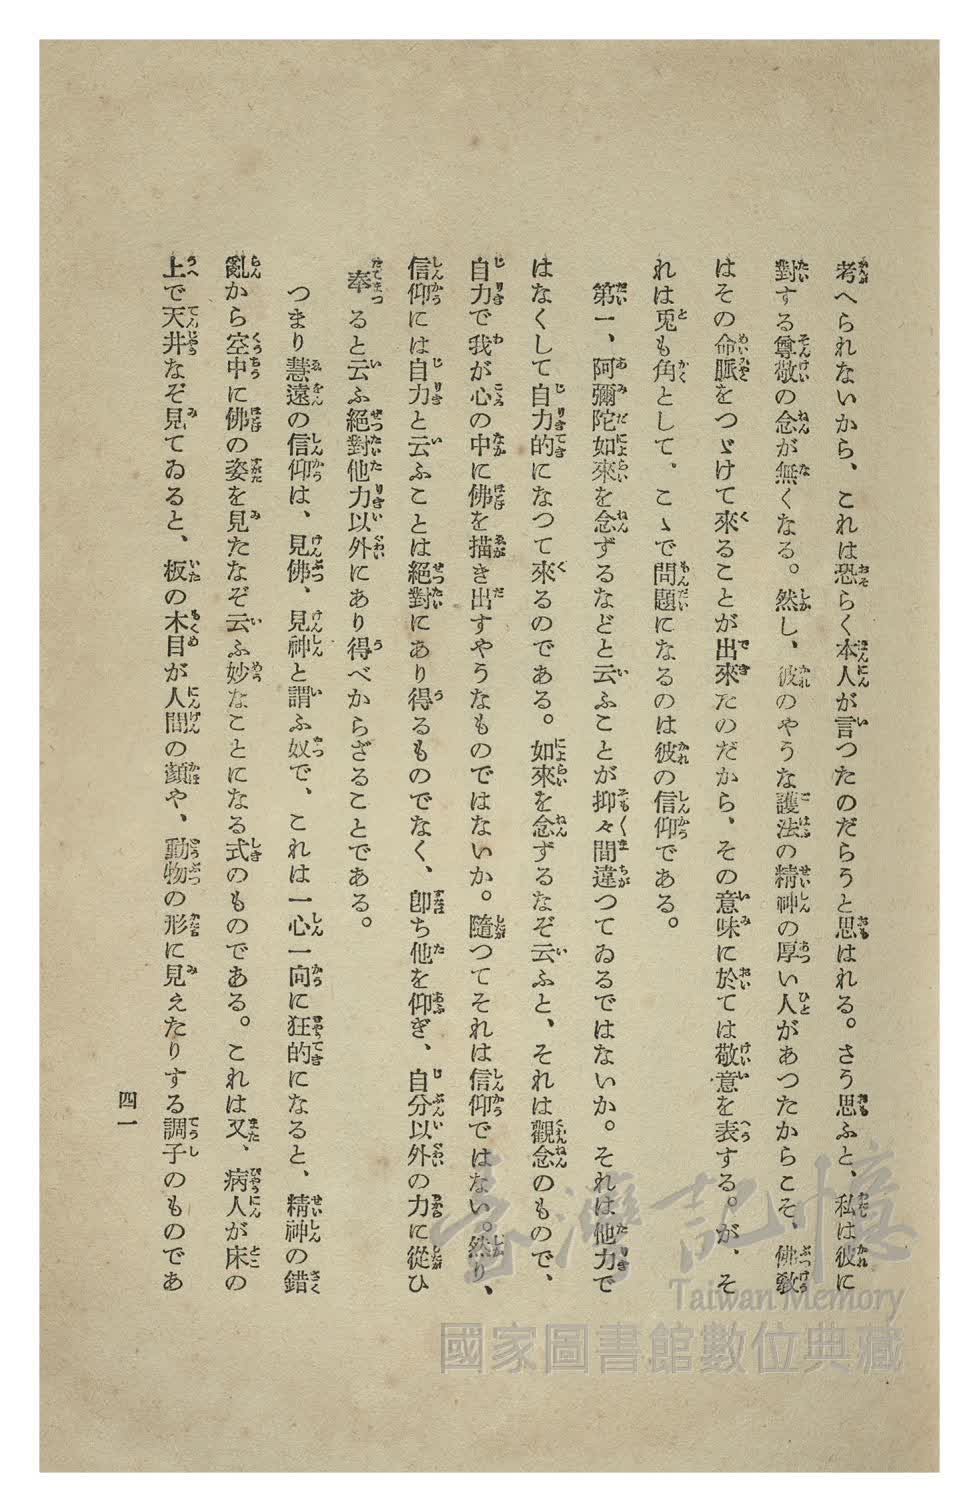 考へられないから、これは恐らく本人が言つたのだらうと思はれる。さう思ふと、私は彼に
對する尊敬の念が無くなる。然し、彼のやうな護法の精神の厚い人があつたからこそ、佛敎
はその命脈をつゞけて來ることが出來たのだから、その意味に於ては敬意を表する。が、そ
れは兎も角として、こゝで問題になるのは彼の信仰である。
第一、阿彌陀如來を念ずるなどと云ふことが抑々間違つてゐるではないか。それは他力で
はなくして自力的になつて來るのである。如來を念ずるなぞ云ふと、それは觀念のもので、
自力で我が心の中に佛を描き出すやうなものではないか。隨つてそれは信仰ではない。然り、
信仰には自力と云ふことは絕對にあり得るものでなく、卽ち他を仰ぎ、自分以外の力に從ひ
奉ると云ふ絕對他力以外にあり得べからざることである。
つまり慧遠の信仰は、見佛、見神と謂ふ奴で、これは一心一向に狂的になると、精神の錯
亂から空中に佛の姿を見たなぞ云ふ妙なことになる式のものである。これは又、病人が床の
上で天井なぞ見てゐると、板の木目が人間の顏や、動物の形に見えたりする調子のものであ
四一
臺灣記憶
Taiwan Memory
國家圖書館數位典藏